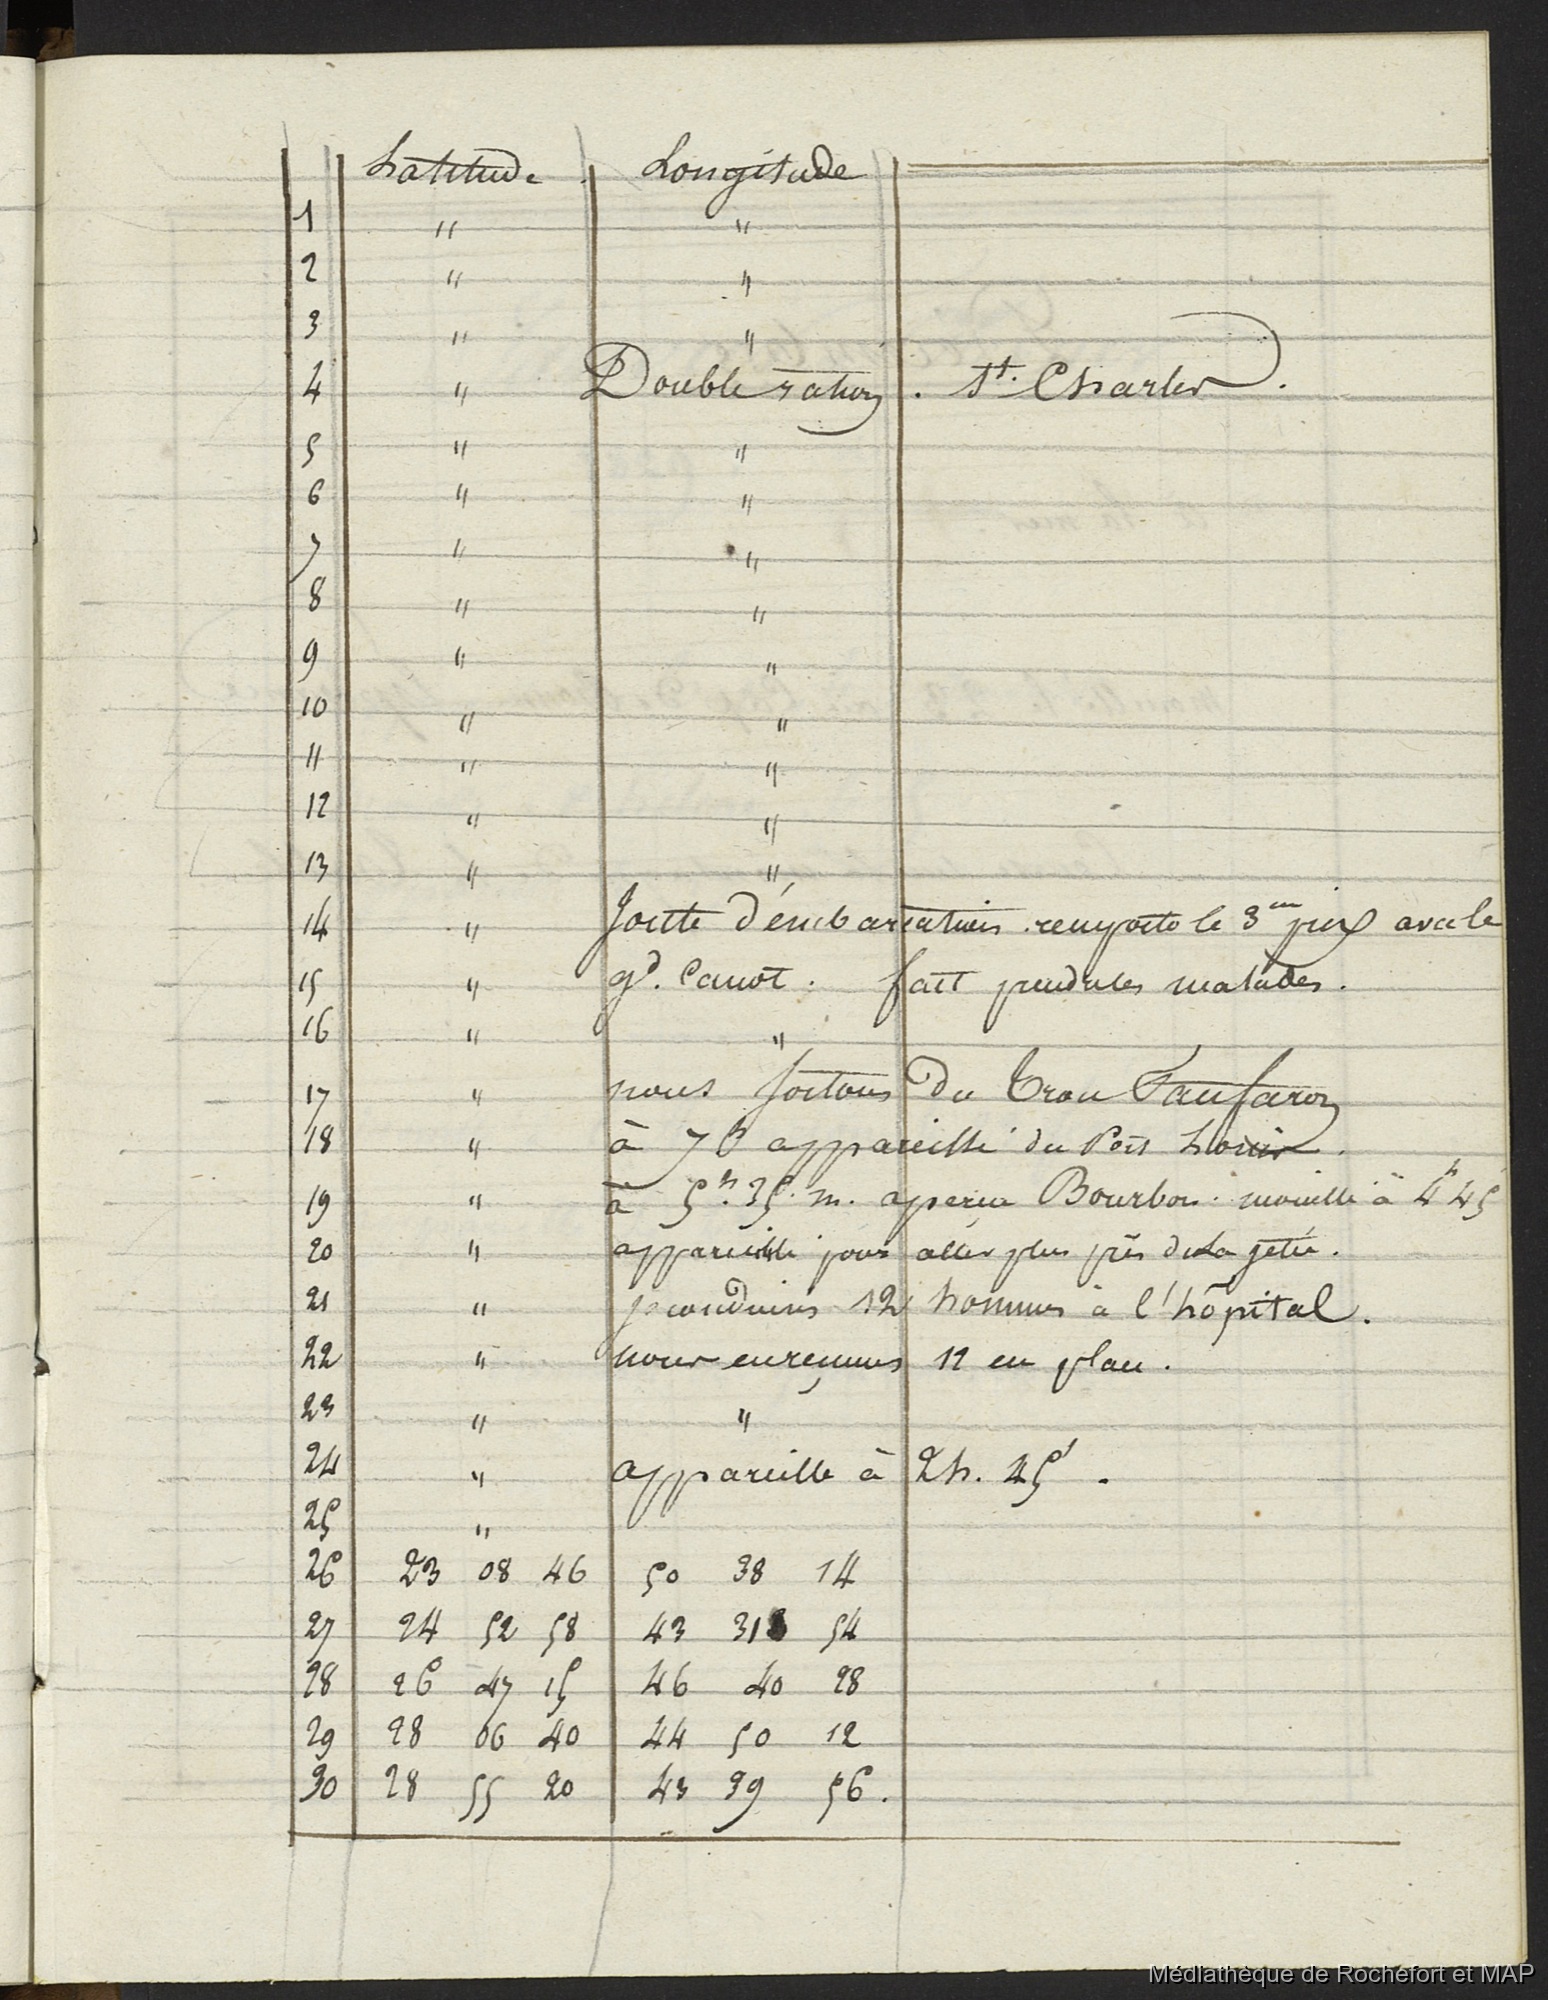 Latitude Longitude
1 " "
2 " "
3 " "
4 " Double ration . St. Charles .
5 " "
6 " "
7 " "
8 " "
9 " "
10 " "
11 " "
12 " "
13 " "
14 " Joute d'embarcations remporté le 3me prix avec le
15 " gd. Canot . fait pendules malades .
16 " "
17 " nous sortons du Trou Fanfaron
18 " à 7h appareillé du Port Louis .
19 " à 5h. 35. m. aperçu Bourbon . mouillé à 4h 45
20 " appareillé pour aller plus près de la jetée .
21 " je conduis 12 hommes à l'hôpital .
22 " nous en reçumes 12 en place .
23 " "
24 " appareillé à 2h. 45' .
25 "
26 23 08 46 50 38 14
27 24 52 58 43 31 54
28 26 47 15 46 40 28
29 28 06 40 44 50 12
30 28 55 20 43 39 56 .
Médiathèque de Rochefort et MAP